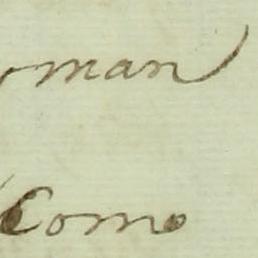 man
Como